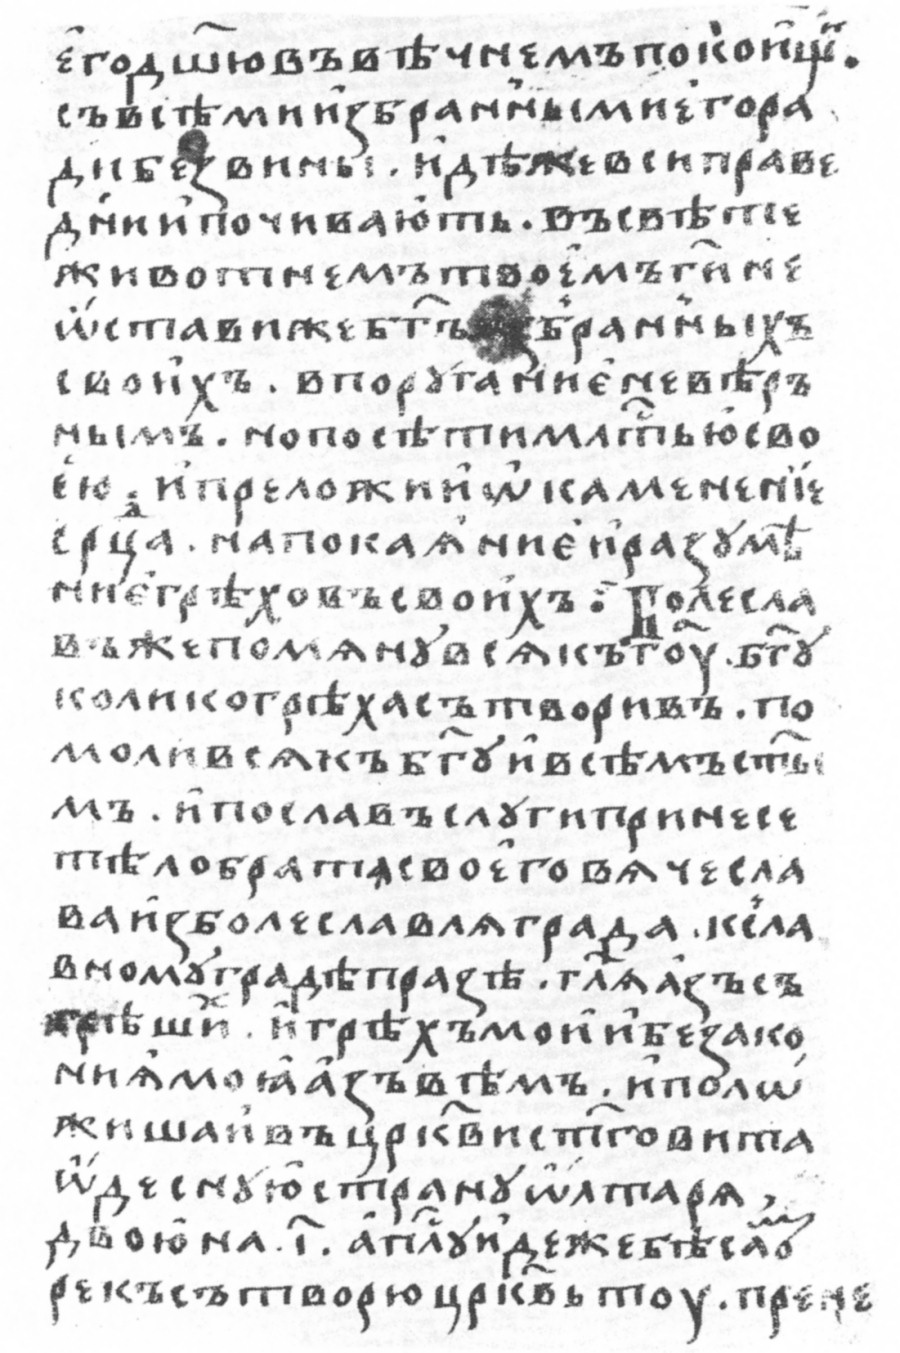 его дш҃ю въ вѣчнемъ покоищи.
съ всѣми избранными его ра
ди без вины. идѣже вси праве
днии почивають. въ свѣте
животнемъ твоемъ ги҃ не
ѡстави же бг҃ъ избранныхъ
своихъ. в поругание невѣр
нымъ. но посѣти млтс҃тью сво
ею. и преложи и ѡ каменение
срдц҃а. на покаѧние и разумѣ
ние грѣховъ своихъ: Болесла
въ же помѧнувсѧ къ гоу҃. бг҃у
колико грѣха сътворивъ. по
моливсѧ къ бг҃у и всѣмъ ст҃ы
мъ. и пославъ слуги принесе
тѣло брата своего вѧчесла
ва из болеславлѧ града. к сла
вному градѣ празѣ. гл҃ѧ азъ съ
грѣшихи. и грѣхъ мои и безако
ниѧ моꙗ азъ вѣмъ. и поло
жиша и въ црк҃ви ст҃го вита
ѡ десную страну ѡлтарѧ,
двою на. і҃. апл҃у идеже бѣ самъ
рекъ сътворю црк҃вь тоу. прене